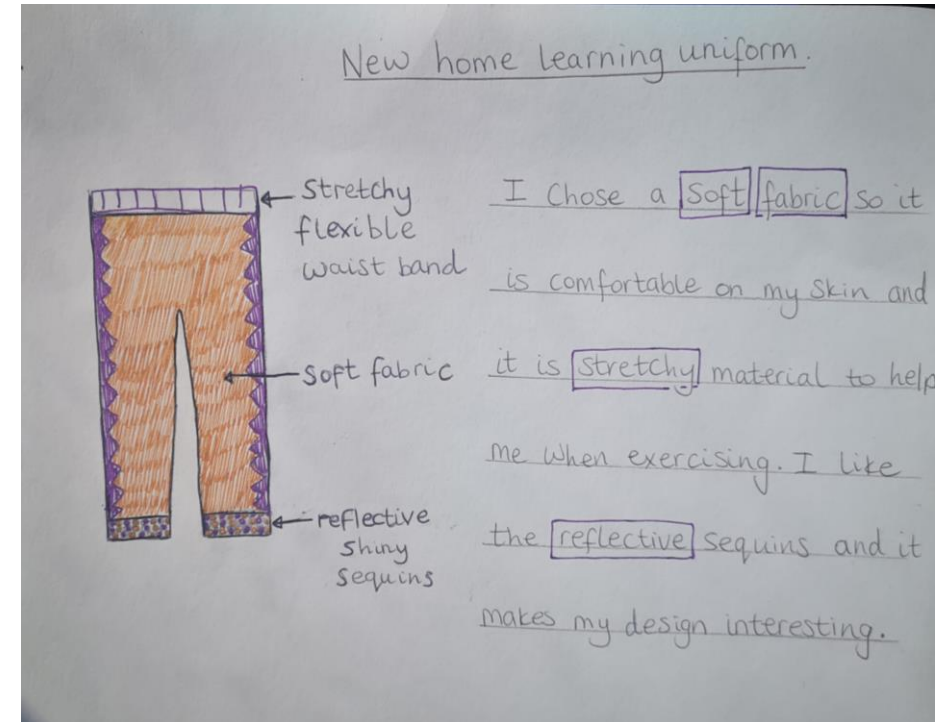 New home learning uniform.
Stretchy
flexible
waist band
soft fabric
reflective
shiny
sequins
I Chose a soft fabric so it
is comfortable on my skin and
it is stretchy material to help
me when exercising. I like
the reflective sequins and it
makes my design interesting.